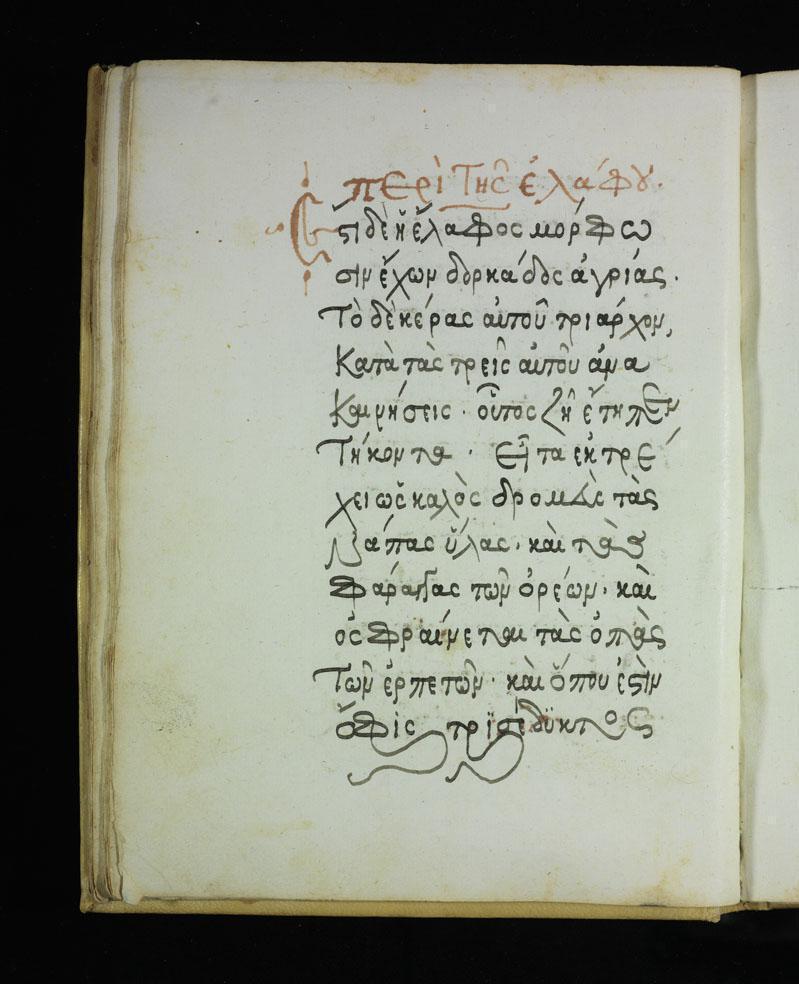 περὶ τῆς ἐλάφου.
Ἔστι δὲ ἡ ἔλαφος μόρφω
σιν ἔχων δορκάδος ἀγρίας.
Τὸ δὲ κέρας αὐτοῦ τρίαρχον,
κατὰ τὰς τρεῖς αὐτοῦ ἀνα
καινήσεις· οὗτος ζῆ ἔτη πεν
τήκοντα· εἶτα ἐκτρέ
χει ὡς καλὸς δρομεὺς τὰς
νάπας ὕλας· καὶ τὰς
φάραγγας τῶν ὀρέων· καὶ
ὀσφραίνεται τὰς ὀπὰς
τῶν ἑρπετῶν· καὶ ὅπου ἐστὶν
ὄφις τρισέδυκτος